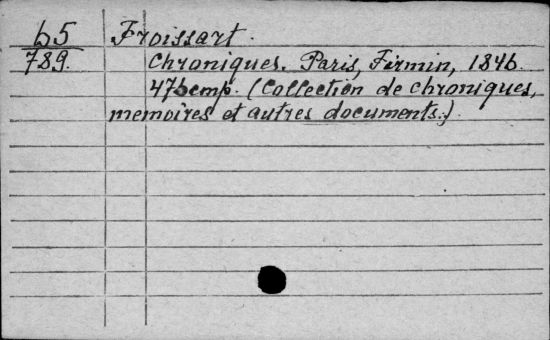 65 Froissart.
789. Chroniques. Paris, Firmin, 1846.
476 стр. (Collection de chroniques,
memoires et autres documents.)